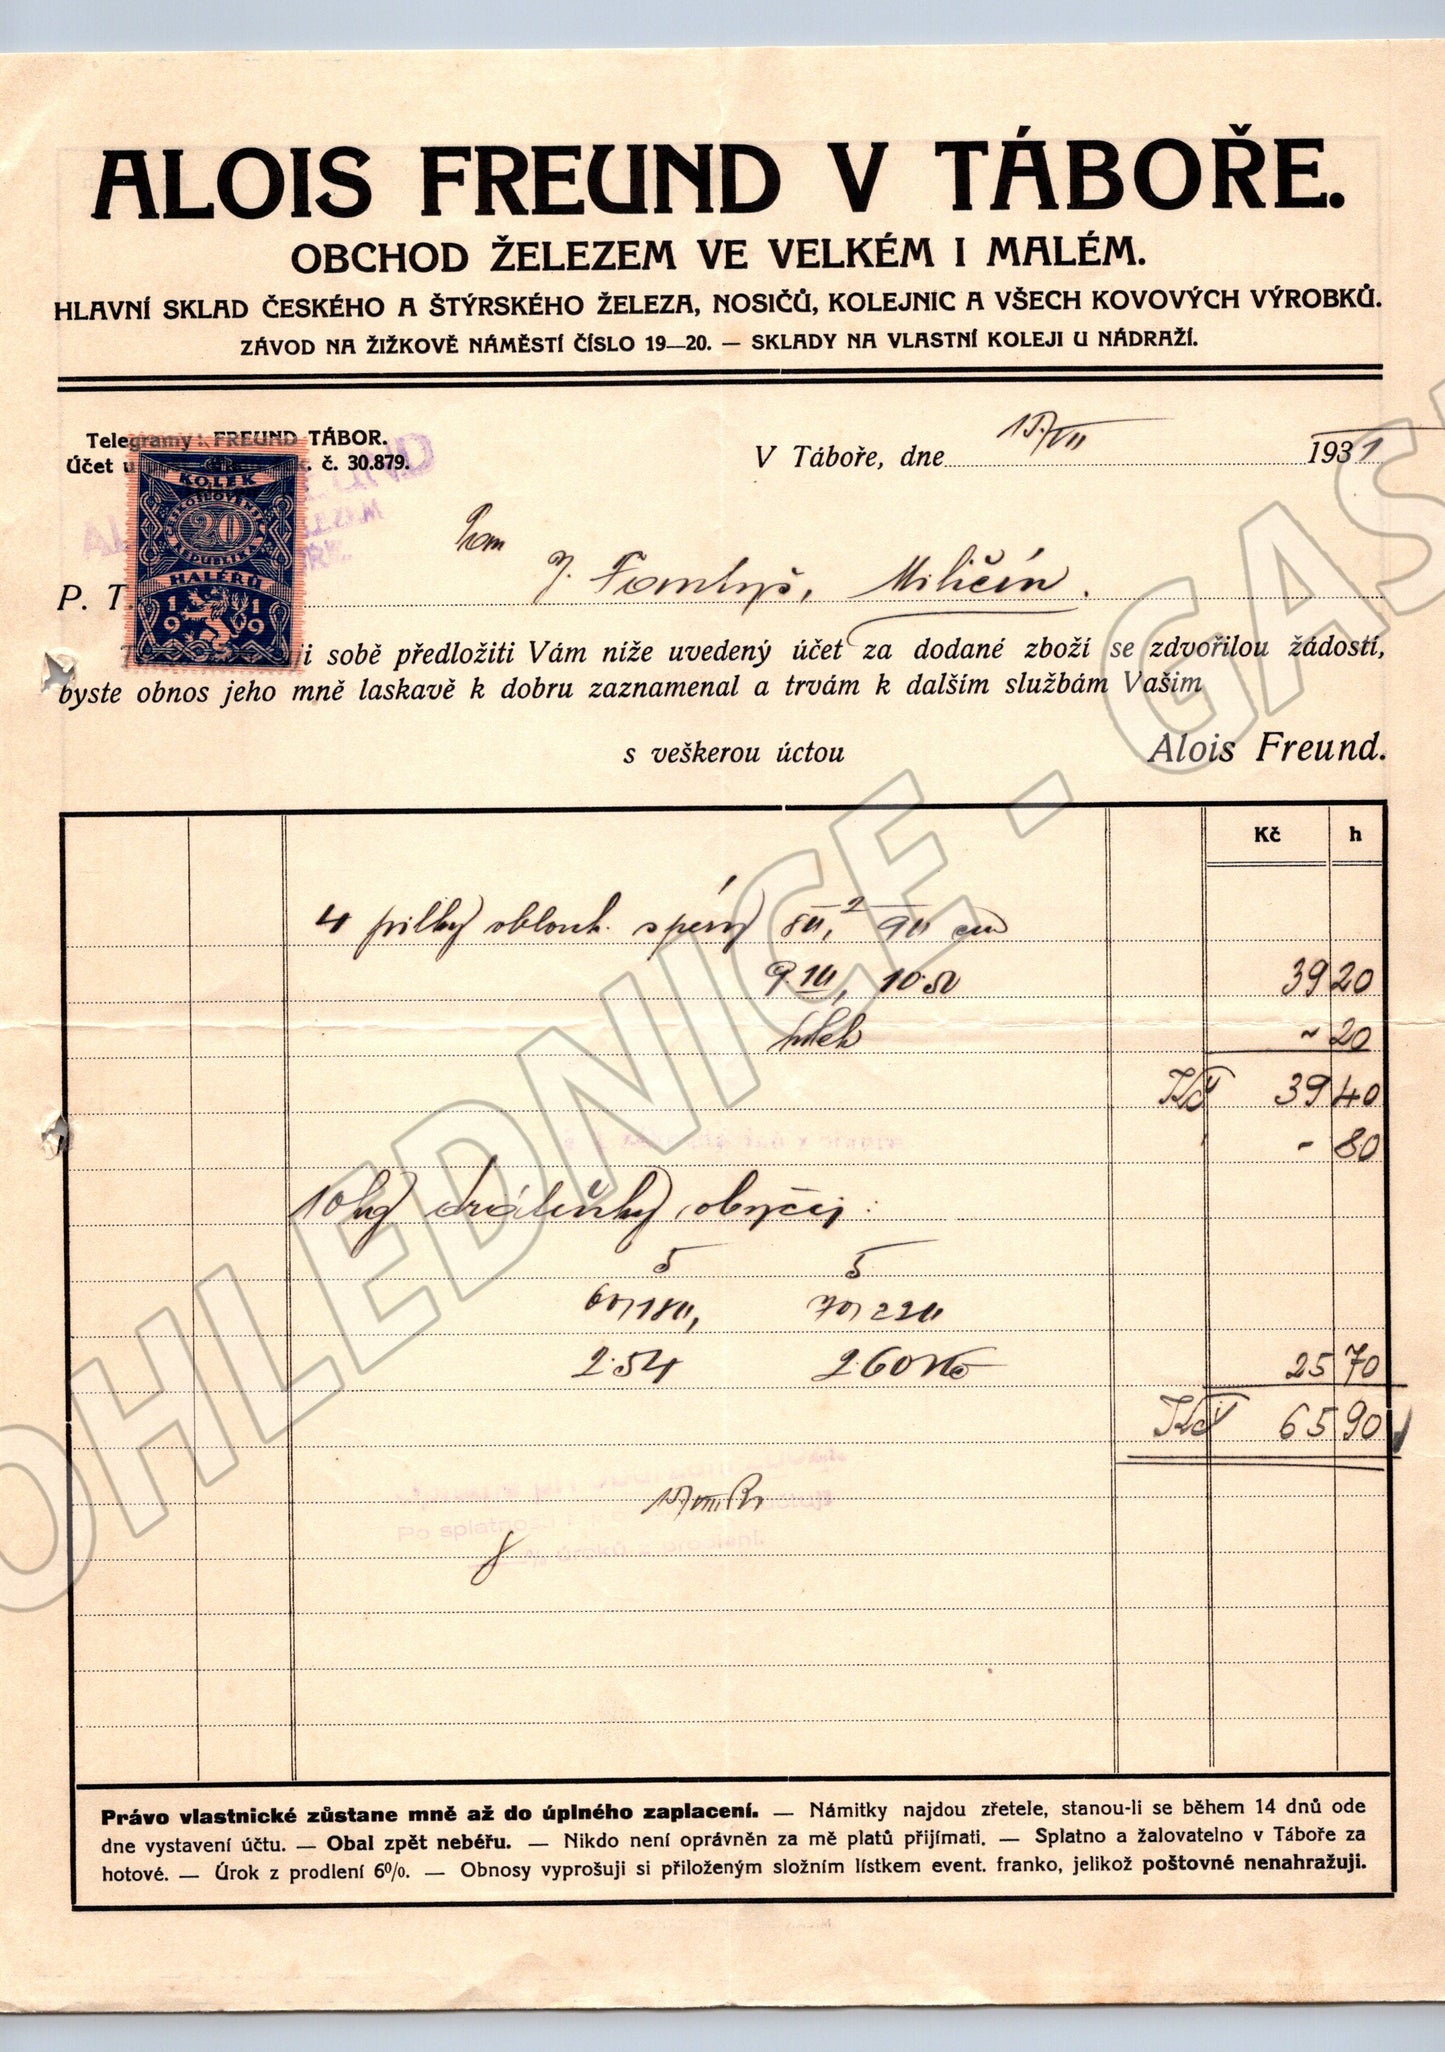 ALOIS FREUND V TÁBOŘE.
OBCHOD ŽELEZEM VE VELKÉM I MALÉM.
HLAVNÍ SKLAD ČESKÉHO A ŠTÝRSKÉHO ŽELEZA, NOSIČŮ, KOLEJNIC A VŠECH KOVOVÝCH VÝROBKŮ.
ZÁVOD NA ŽIŽKOVĚ NÁMĚSTÍ ČÍSLO 19—20. — SKLADY NA VLASTNÍ KOLEJI U NÁDRAŽÍ.
Telegramy: FREUND TÁBOR.
Účet č. 30.879.
V Táboře, dne 15/VII 1931
KOLEK
ČESKOSLOVENSKÁ
20
REPUBLIKA
HALÉŘŮ
1919
Pan
P. T. J. Miličín.
sobě předložiti Vám níže uvedený účet za dodané zboží se zdvořilou žádostí,
byste obnos jeho mně laskavě k dobru zaznamenal a trvám k dalším službám Vašim
s veškerou úctou Alois Freund.
Kč h
4 pilky oblouk. s péry 80, 2 90 cm
9.10, 10.50 39 20
kolek ~ 20
Kč 39 40
- 80
10 kg drátěnky obyčej:
5 5
60/180, 70/220
2.54 2.60 Kč 25 70
Kč 65 90
15/VIII
Po splatnosti
úroků z prodlení.
Právo vlastnické zůstane mně až do úplného zaplacení. — Námitky najdou zřetele, stanou-li se během 14 dnů ode
dne vystavení účtu. — Obal zpět nebéřu. — Nikdo není oprávněn za mě platů přijímati. — Splatno a žalovatelno v Táboře za
hotové. — Úrok z prodlení 6%. — Obnosy vyprošuji si přiloženým složním lístkem event. franko, jelikož poštovné nenahražuji.
OHLEDNICE - GAS